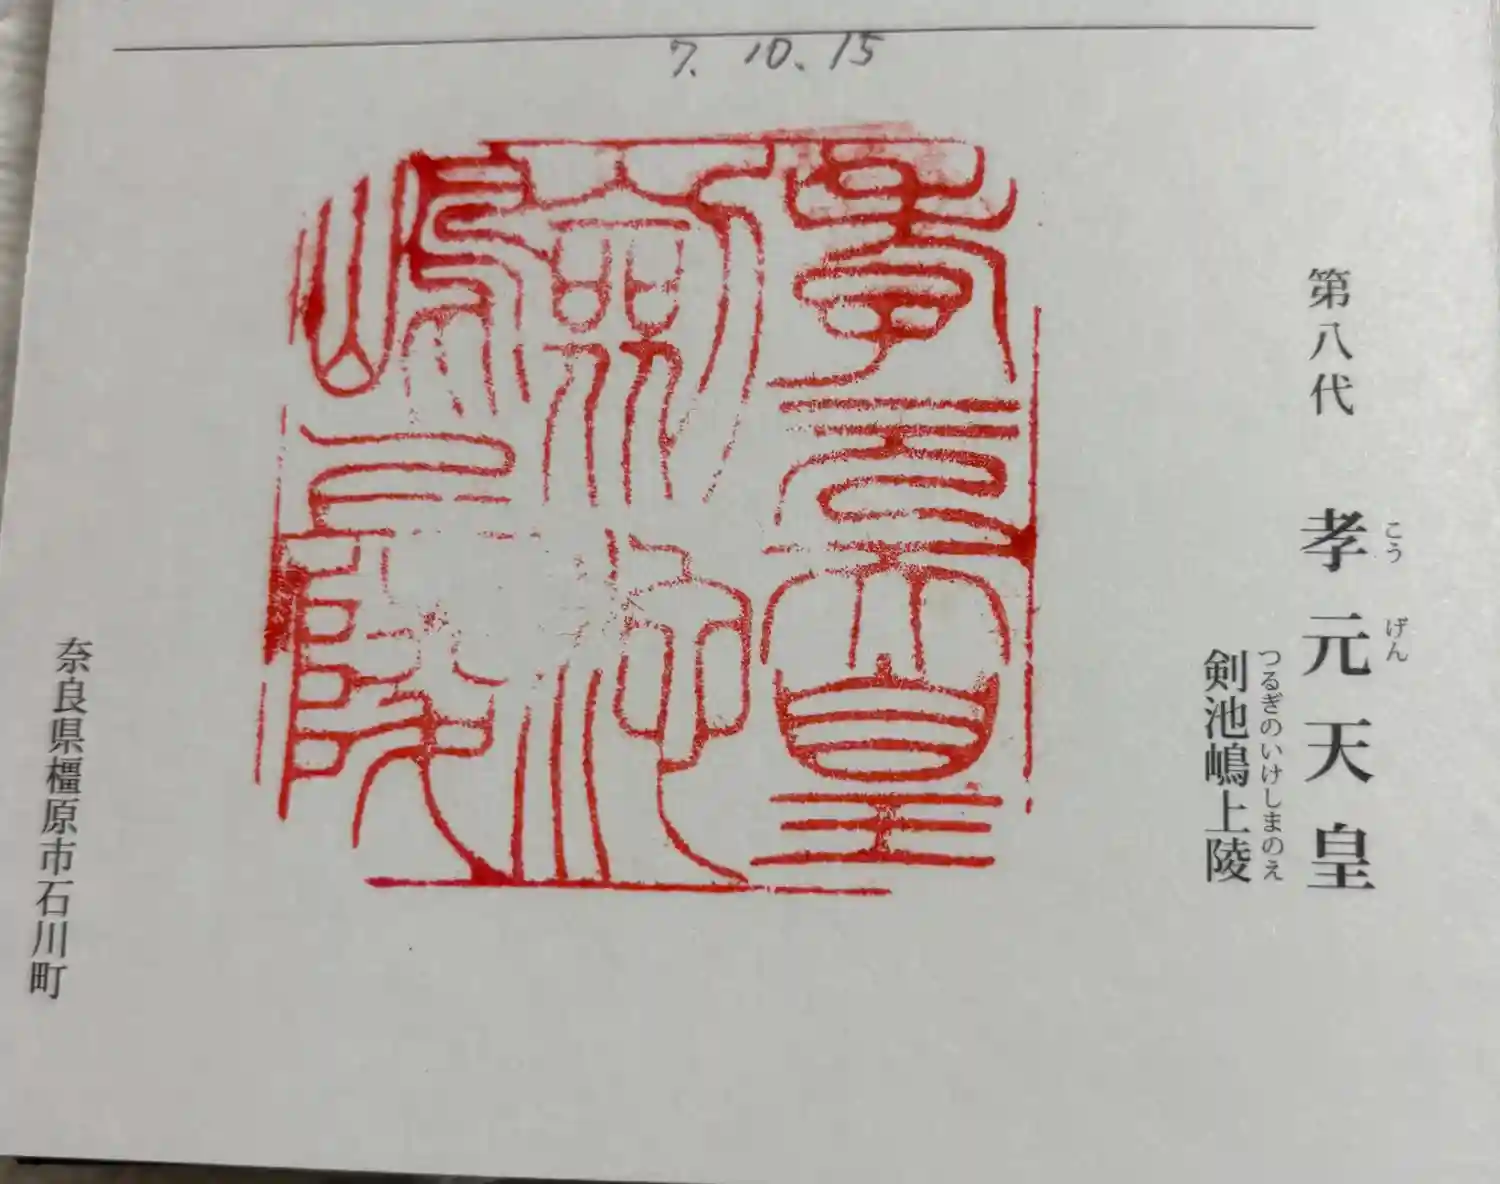 7. 10. 15
第八代 孝元天皇
こう げん
剣池嶋上陵
つるぎのいけしまのえ
孝元天皇
剣池
嶋上陵
奈良県橿原市石川町